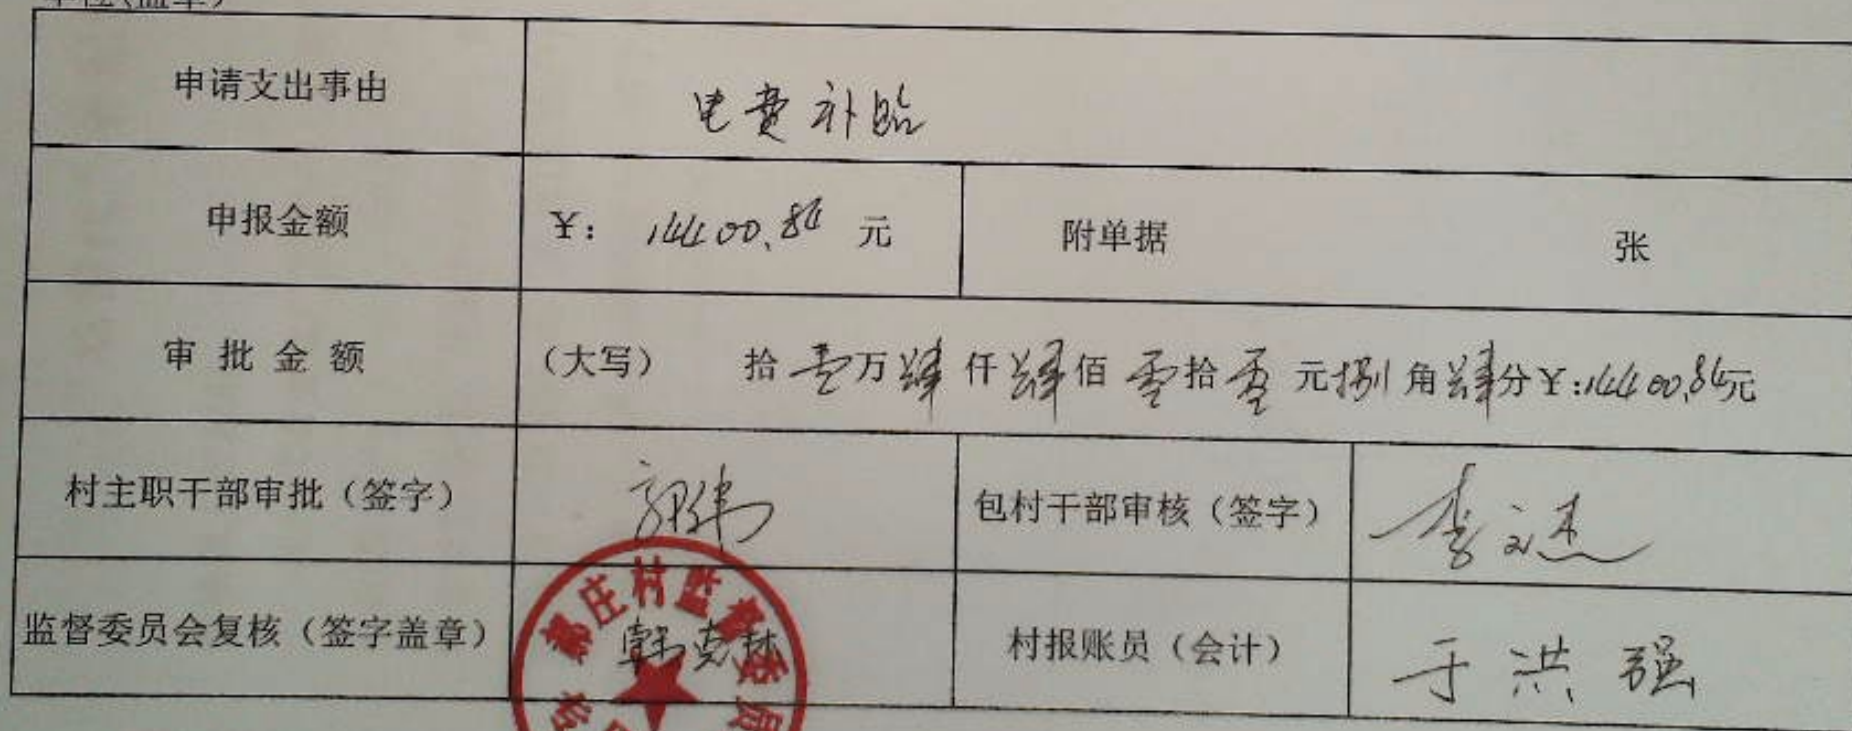 申请支出事由 电费补贴
申报金额 ¥: 14400.84 元 附单据 张
审批金额 (大写) 拾壹万肆仟肆佰零拾零元捌角肆分¥:14400.84元
村主职干部审批(签字) 郭伟 包村干部审核(签字) 李文杰
监督委员会复核(签字盖章) 韩克林 村报账员(会计) 于洪强
庄村监督委员